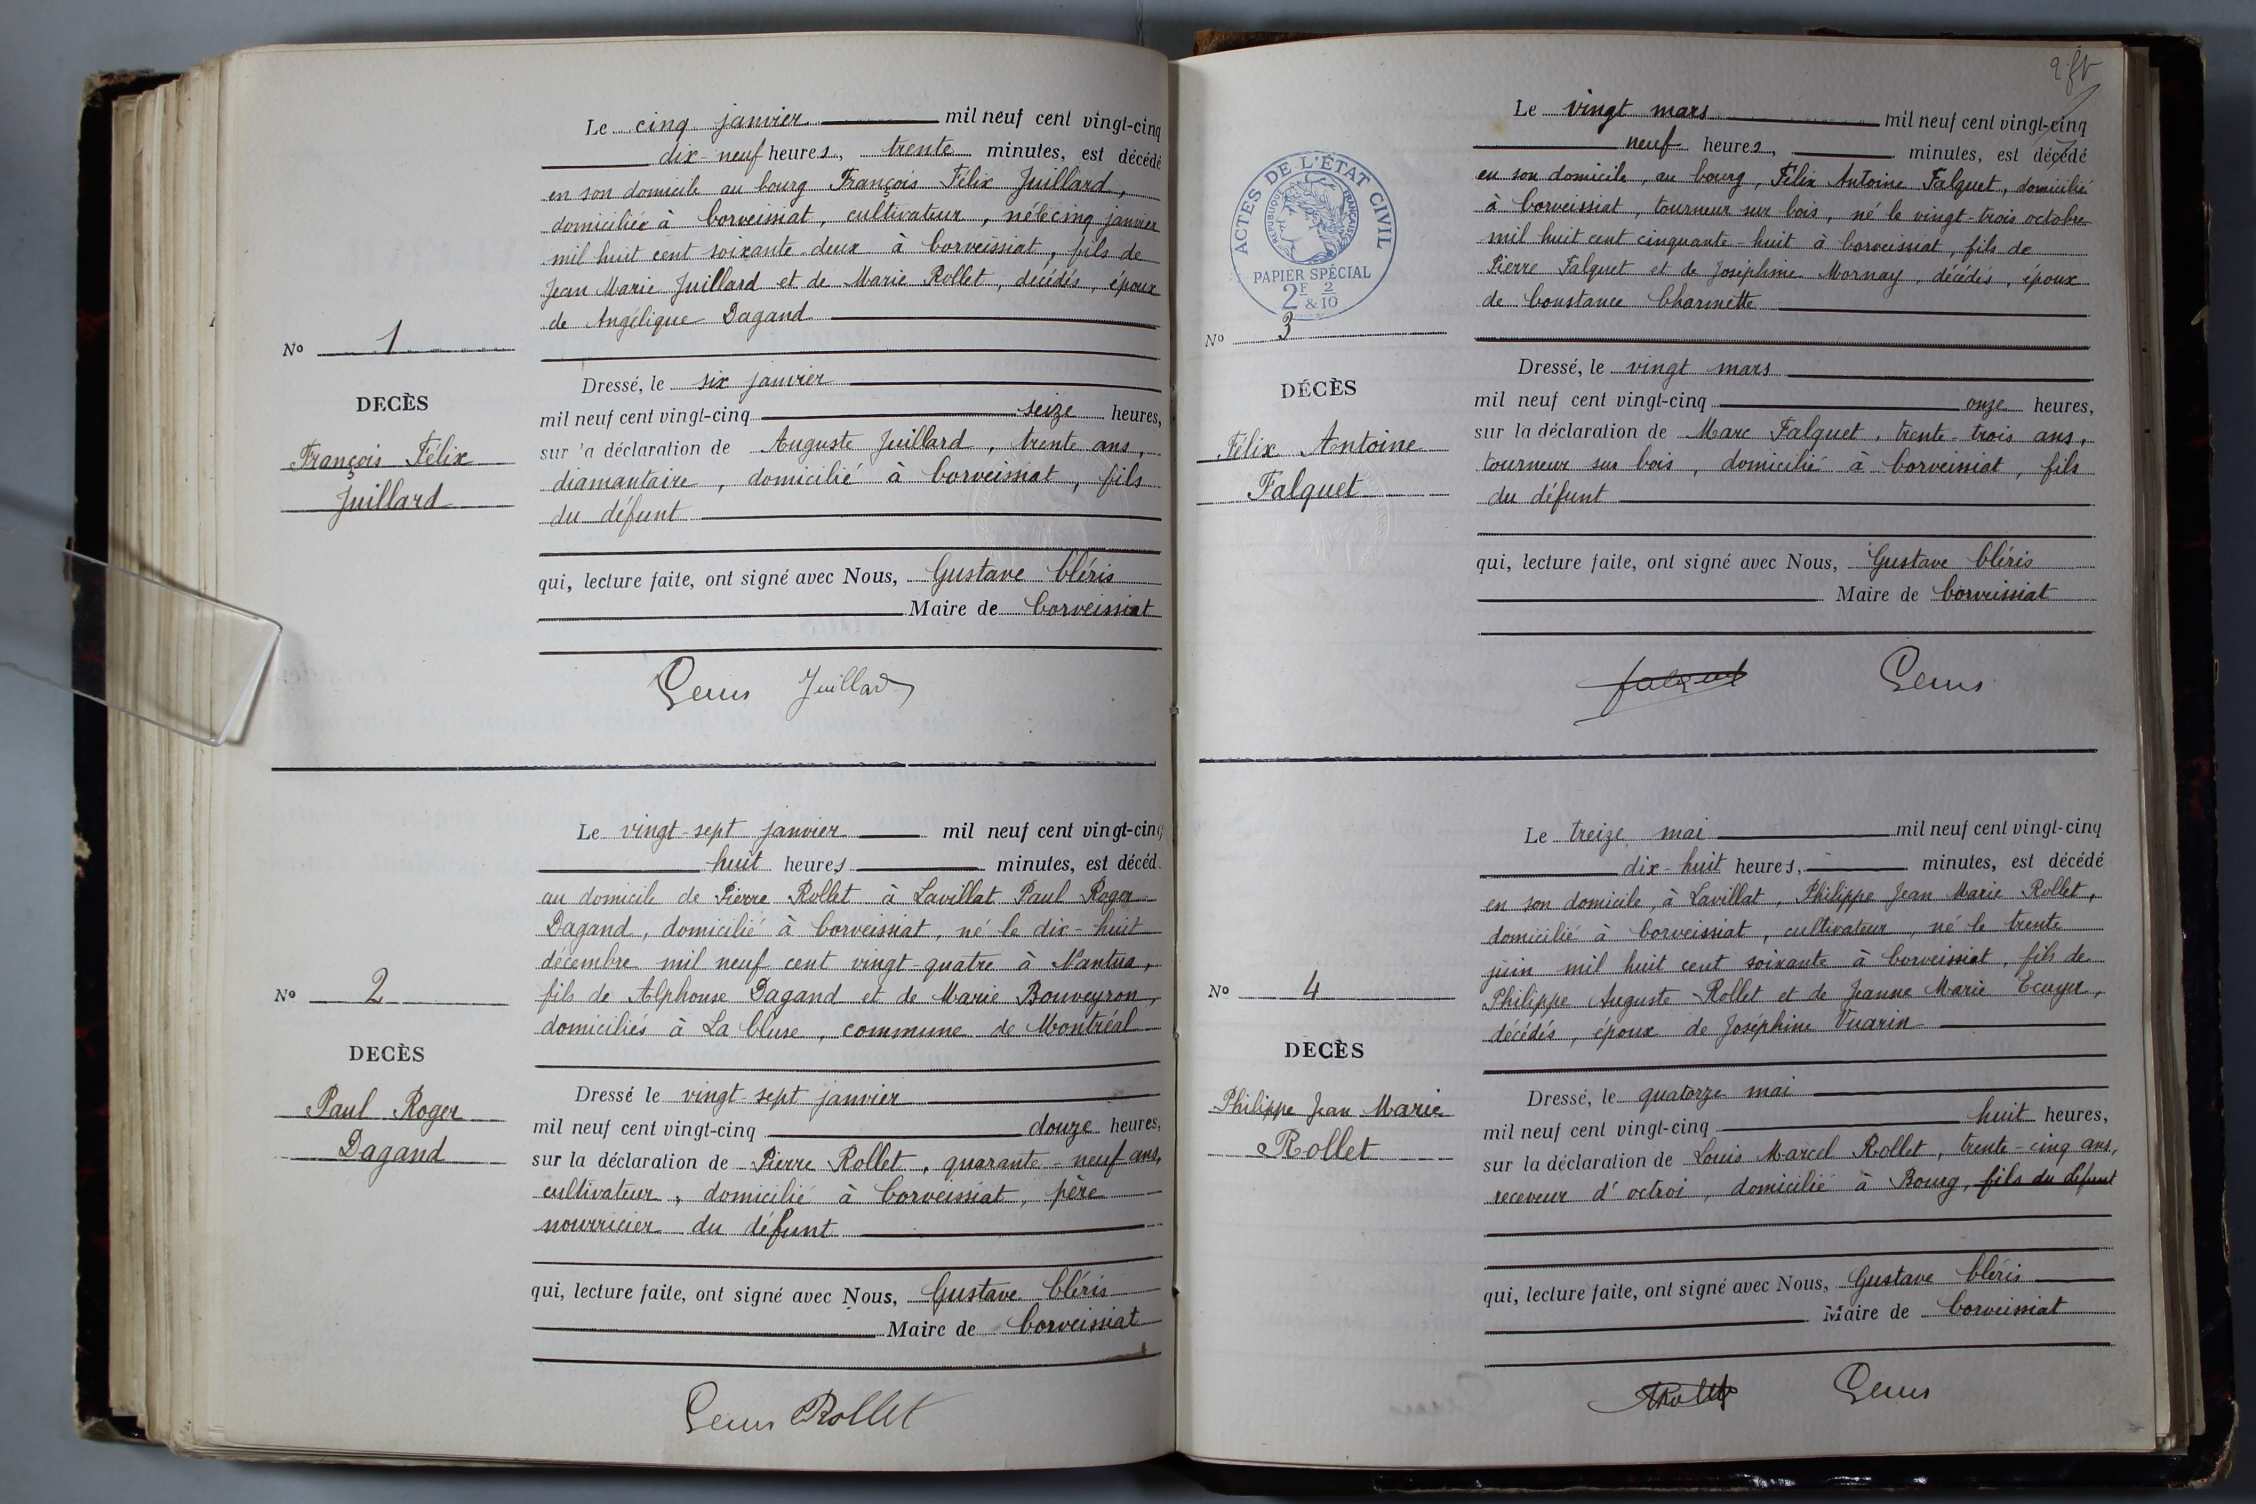 Le cinq janvier mil neuf cent vingt-cinq
dix-neuf heures, trente minutes, est décédé
en son domicile au bourg François Félix Juillard,
domiciliée à Corveissiat, cultivateur, né le cinq janvier
mil huit cent soixante deux à Corveissiat, fils de
Jean Marie Juillard et de Marie Rollet, décédés, époux
de Angélique Dagand
No 1
DECÈS
François Félix
Juillard
Dressé, le six janvier
mil neuf cent vingt-cinq seize heures,
sur la déclaration de Auguste Juillard, trente ans,
diamantaire, domicilié à Corveissiat, fils
du défunt
qui, lecture faite, ont signé avec Nous, Gustave Cléris
Maire de Corveissiat
Juillard
Le vingt-sept janvier mil neuf cent vingt-cinq
huit heures minutes, est décéd
au domicile de Pierre Rollet à Lavillat Paul Roger
Dagand, domicilié à Corveissiat, né le dix-huit
décembre mil neuf cent vingt-quatre à Nantua,
fils de Alphonse Dagand et de Marie Bouveyron,
domiciliés à La Cluse, commune de Montréal
No 2
DECÈS
Paul Roger
Dagand
Dressé le vingt-sept janvier
mil neuf cent vingt-cinq douze heures,
sur la déclaration de Pierre Rollet, quarante-neuf ans,
cultivateur, domicilié à Corveissiat, père
nourricier du défunt
qui, lecture faite, ont signé avec Nous, Gustave Cléris
Maire de Corveissiat
Rollet
ACTES DE L'ÉTAT CIVIL
RÉPUBLIQUE FRANÇAISE
PAPIER SPÉCIAL
2F & 2/10
Le vingt mars mil neuf cent vingt-cinq
neuf heures, minutes, est décédé
en son domicile, au bourg, Félix Antoine Falquet, domicilié
à Corveissiat, tourneur sur bois, né le vingt-trois octobre
mil huit cent cinquante-huit à Corveissiat, fils de
Pierre Falquet et de Joséphine Mornay, décédés, époux
de Constance Charmette
No 3
DÉCÈS
Félix Antoine
Falquet
Dressé, le vingt mars
mil neuf cent vingt-cinq onze heures,
sur la déclaration de Marc Falquet, trente-trois ans,
tourneur sur bois, domicilié à Corveissiat, fils
du défunt
qui, lecture faite, ont signé avec Nous, Gustave Cléris
Maire de Corveissiat
falquet
Le treize mai mil neuf cent vingt-cinq
dix-huit heures, minutes, est décédé
en son domicile, à Lavillat, Philippe Jean Marie Rollet,
domicilié à Corveissiat, cultivateur, né le trente
juin mil huit cent soixante à Corveissiat, fils de
Philippe Auguste Rollet et de Jeanne Marie Ecuyer,
décédés, époux de Joséphine Vuarin
No 4
DECÈS
Philippe Jean Marie
Rollet
Dressé, le quatorze mai
mil neuf cent vingt-cinq huit heures,
sur la déclaration de Louis Marcel Rollet, trente-cinq ans,
receveur d'octroi, domicilié à Bourg, fils du défunt
qui, lecture faite, ont signé avec Nous, Gustave Cléris
Maire de Corveissiat
Rollet